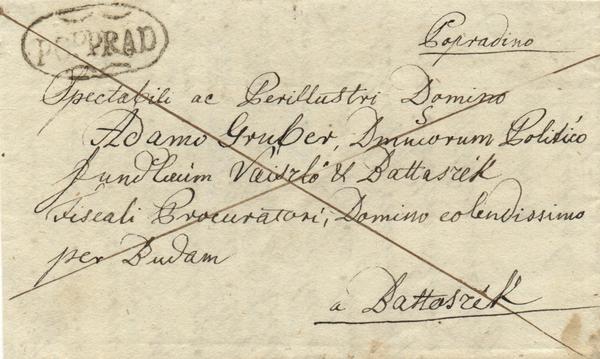 POPPRAD
Popradino
Spectabili ac Perillustri Domino
Adamo Gruber, Politico
Vaiszló & Battaszék
Fiscali Procuratori, Domino colendissimo
per Budam
à Battaszék